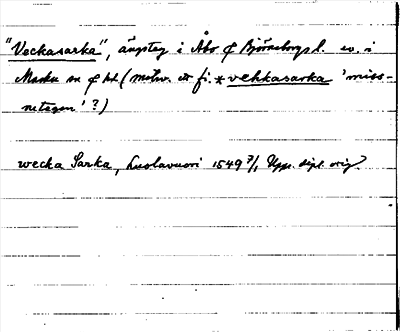 "Veckasarka", ängsteg i Åbo o Björneborgs l. ev. i
Masku sn o hd (motsv. ett fi. *vehkasarka 'miss-
netegen' ?)
wecka Sarka, Luolavuori 1549 7/1 Upps. dipl. orig.